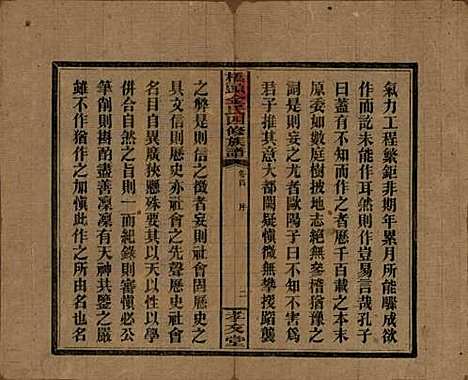 氣力工程繁鉅非期年累月所能驟成欲
作而訖未能作耳然則作豈易言哉孔子
曰蓋有不知而作之者歷千百載之本末
原委如數庭樹披地志絕無參稽猶豫之
詞是則妄之尤者歐陽子曰不知不害為
君子推其意大都闕疑慎微無攀援蹈襲
橋頭金氏四修族譜
卷首
序
二
孝友堂
之弊是則信之徵者妄則固歷史之
具文信則歷史亦社會之先聲歷史社會
名目異廣狹歷殊要其以天以性以學
併合自然之旨則一而紀錄則審慎必公
筆削則斟酌盡善凜凜有天神共鑒之嚴
雖不作猶作之加慎此作之所由名也